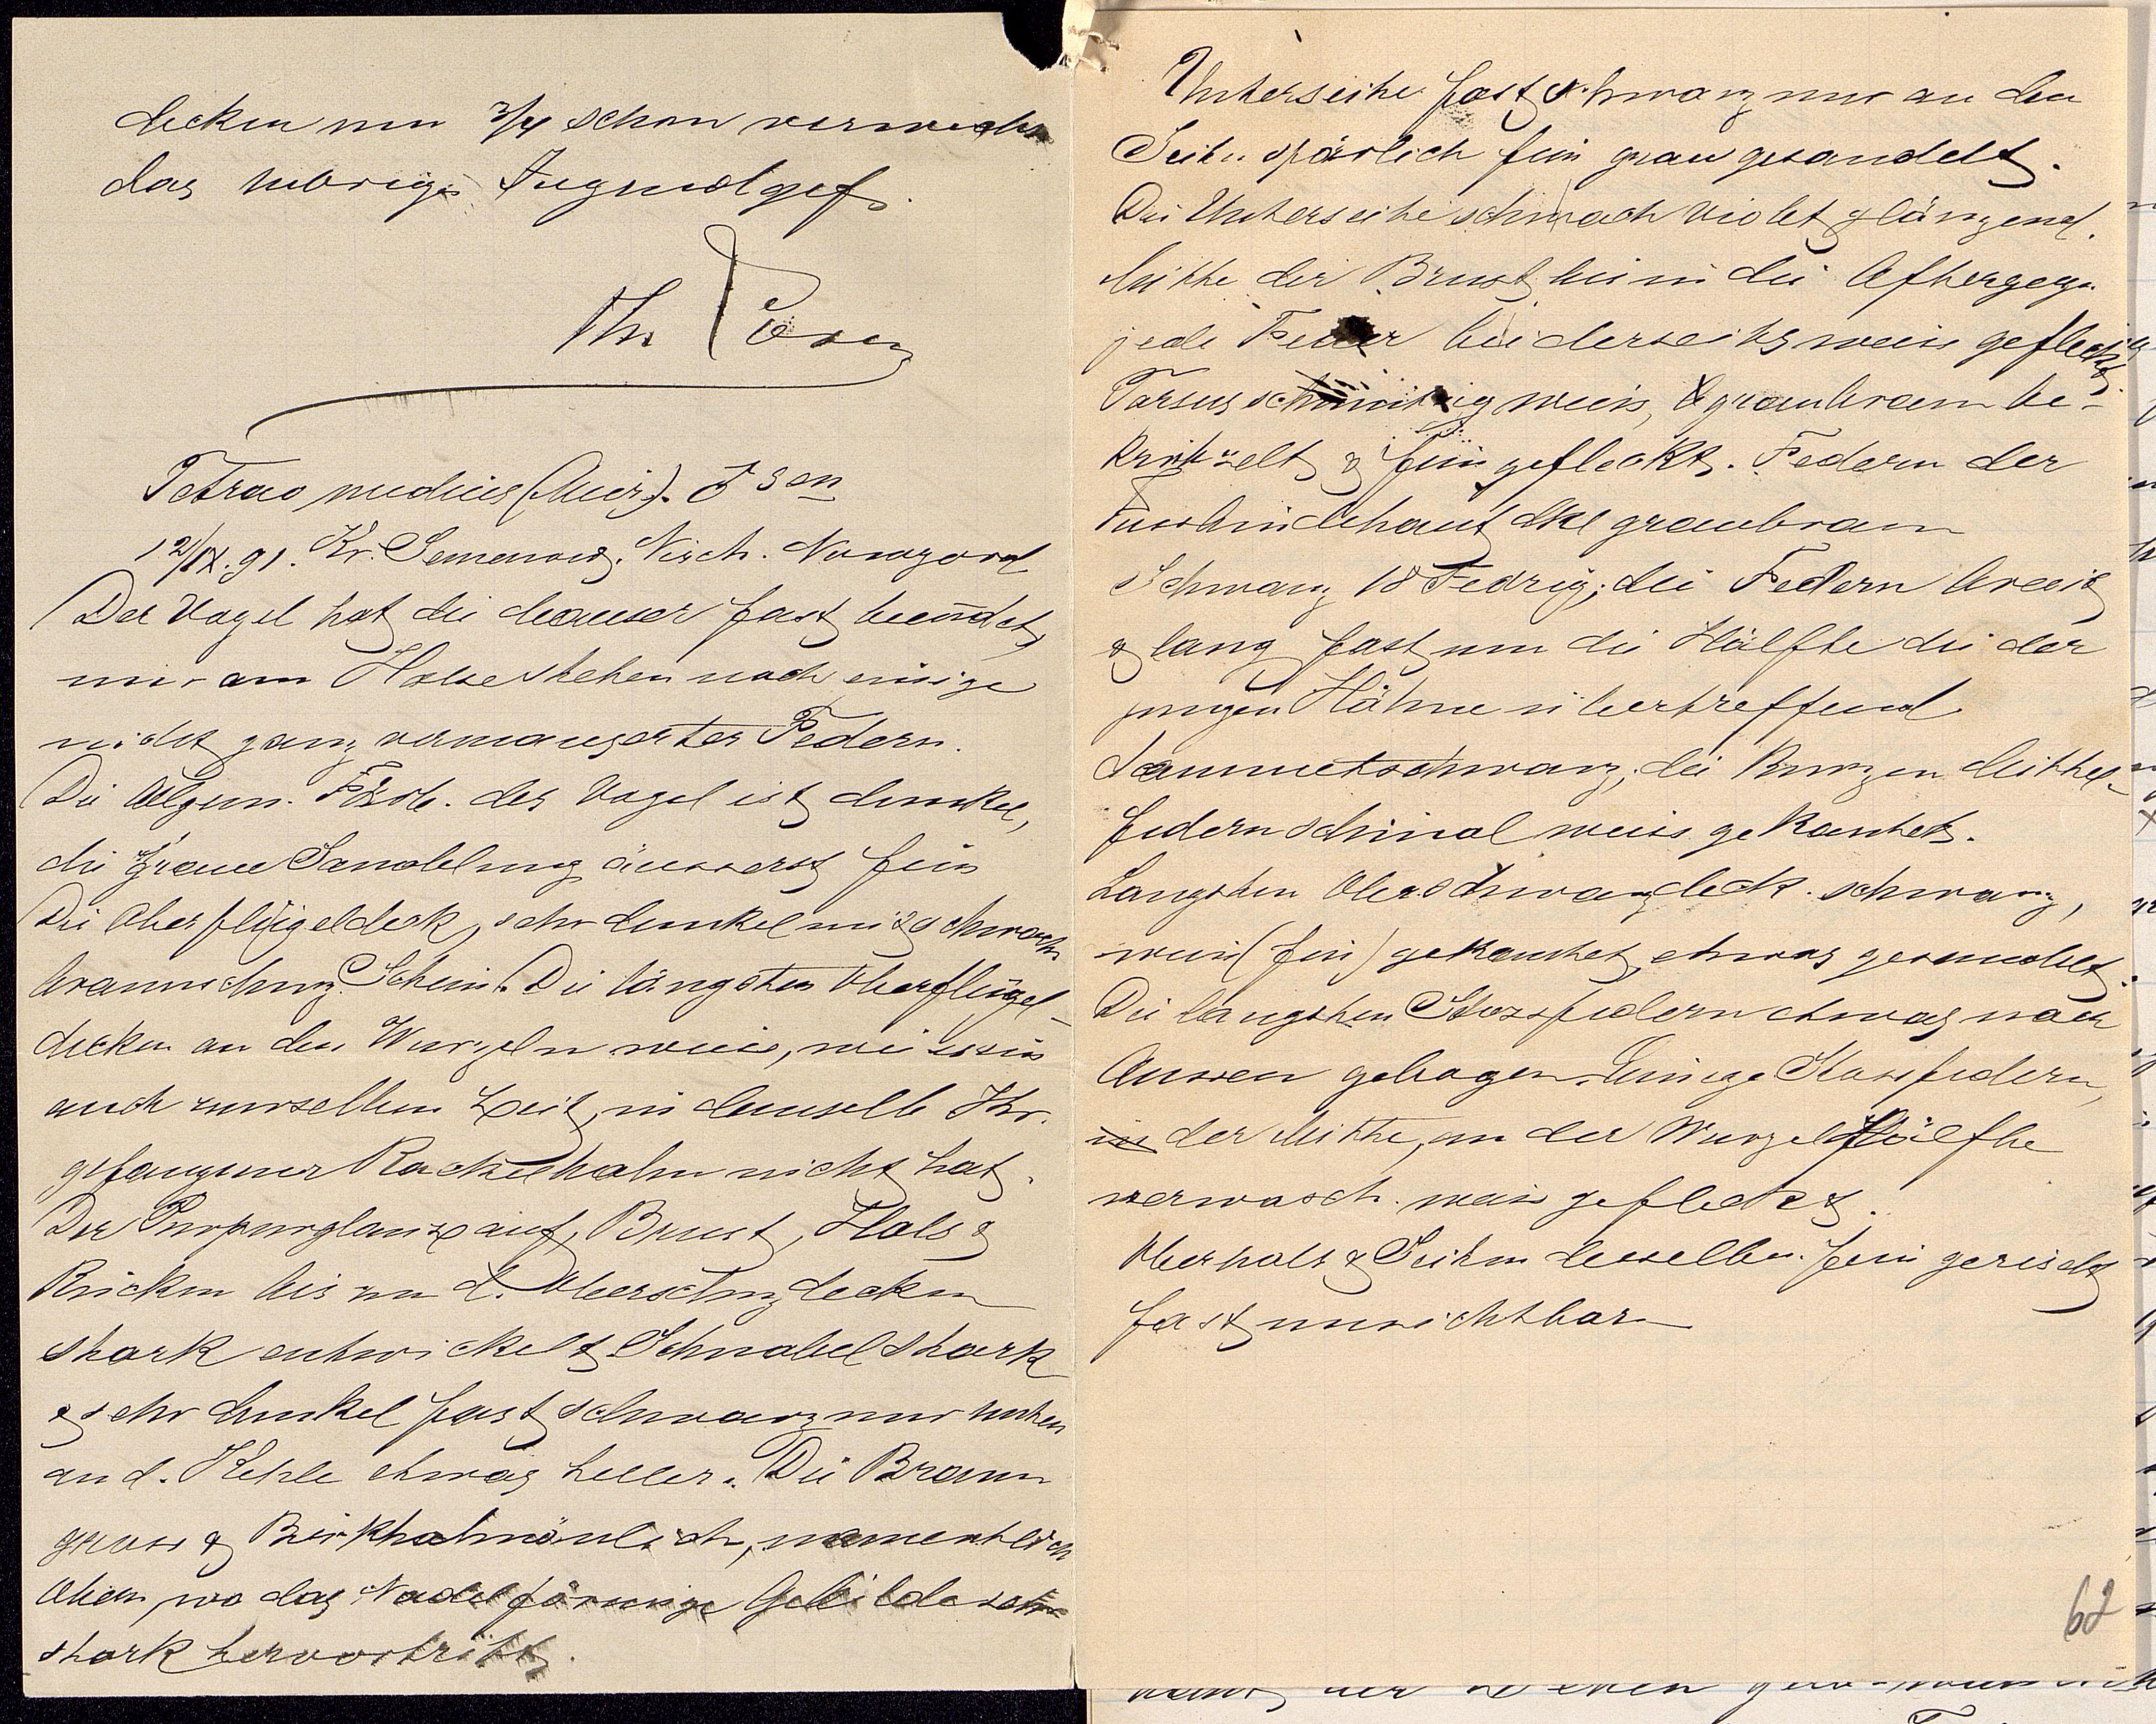 decken nur 3/4 schon verwachs
das uebrige Jugendgef.
Th Lorenz
Tetrao medius (Meier). ♂ sen
12/IX. 91. Kr. Semenow, Nisch. Nowgorod
Der Vogel hat die Mauser fast beendet,
nur am Halse stehen noch einige
nicht ganz vermauserter Federn.
Die Allgem. Färb. des Vogel ist dunkel,
die graue Sandelung äusserst fein
Die Oberflügeldeck, sehr dunkel mit schwach
braunschwz. Schein. Die längsten Oberflügel-
decken an den Wurzeln weis, wie es ein
auch zurselben Zeit, in demselb Jhr.
gefangener Rackelhahn nicht hat.
Der Purpurglanz auf, Brust, Hals &
Rücken bis zu d. Oberschwzdecken
stark entwickelt. Schnabel stark
& sehr dunkel fast schwarz nur unten
an d. Kehle etwas heller. Die Braun
gross & Birkhahnänlich, namentlich
oben, wo das Nadelförmige Gebilde sehr
stark hervortritt.
Unterseite fast schwarz nur an den
Seiten spärlich fein grau gesandelt.
Die Unterseite schwach violet glänzend.
Mitte der Brust bis in die Aftergegn.
jede Feder beiderseits weis gefleckt.
Tarsus schmutzig weis, graubraun be-
kritzelt & fein gefleckt. Federn der
Fussbindehaut dkl graubraun
Schwanz 18 Fedrig; die Federn breit
& lang fast um die Hälfte die der
jungen Hähne übertreffend
Sammetschwarz, die Kurzen Mittel-
federn schmal weiss gekantet.
Langsten Oberschwanzdeck. schwarz,
weis (fein) gekantet, etwas gesandelt.
Die langsten Stossfedern etwas nach
Aussen gebogen. Einige Stossfedern,
in der Mitte, an der Wurzel Hälfte
verwasch. weis gefleckt.
Oberhals & Seiten desselben fein
fast unsichtbar
62